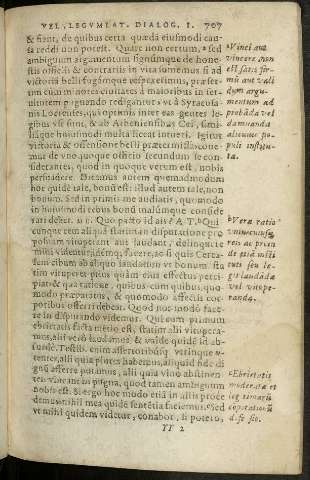 VEL LEGVMLAT. DIALOG. I. 707
& fiant, de quibus certa quædã eiusmodi cau-
sa reddi non potest. Quare non certum, sed
ambiguum argumentum signúmque de hone-
stis officiis & contrariis in vita sumemus si ad
victoriã belli fugámque respexerimus, præser-
tim cùm minores ciuitates à maioribus in ser-
uitutem pugnando redigantur: vt à Syracusa-
nis Locrenses, qui optimis inter eas gentes le-
gibus vsi sunt, & ab Atheniensibus Cei, simi-
liáque huiusmodi multa liceat intueri. Igitur
victoria & offensione belli prætermissa cone-
mur de vno quoque officio secundum se con-
siderantes, quod in quoque verum est, nobis
persuadere. Dicamus autem quemadmodum
hoc quidẽ tale, bonũ est: illud autem tale, non
bonum. Sed in primis me audiatis, quomodo
in huiusmodi rebus bonũ malúmque conside-
rari debet. M I. Quo pacto id ais? A T. Qui
cunque rem aliquã statim in disputatione pro
positam vituperant aut laudant, delinquere
mihi videntur,
sem cibum ab aliquo laudatum vt bonum sta
tim vituperet prius quàm eius effectus perci-
piat & qua ratione, quibus cum quibus, quo-
modo præparatos, & quomodo affectis cor-
poribus offerri debeat. Quod nos modò face-
re in disputando videmur. Qui cùm primum
ebrietatis facta mẽtio est, statim alii vitupera-
mus, alii verò laudamus, & valde quidẽ id ab-
surdè. Testib. enim assertoribúsq; vtrinque v-
tentes, alii quia plures habemus, aliquid fide di
gnũ asserere putamus, alii quia vino abstinen-
tes vincant in pugna, quod tamen ambiguum
nobis est. & ergo hoc modo etiã in aliis proce
demus, nihil mea quidẽ sentẽtia faciemus. sed
vt mihi quidem videtur, conabor, si potero,
TT 2
Vinci aut
vincere, non
est satis fir-
mũ aut vali
dum argu-
mentum ad
probãda vel
damnanda
alicuius po-
puli institu-
ta.
Vera ratio
vniuscuiusq;
rei ac præci
pue
tuti seu le-
gis laudãdæ
vel vitupe-
randæ.
Ebrietatis
moderatæ et
leg timarũ
cõpotationũ